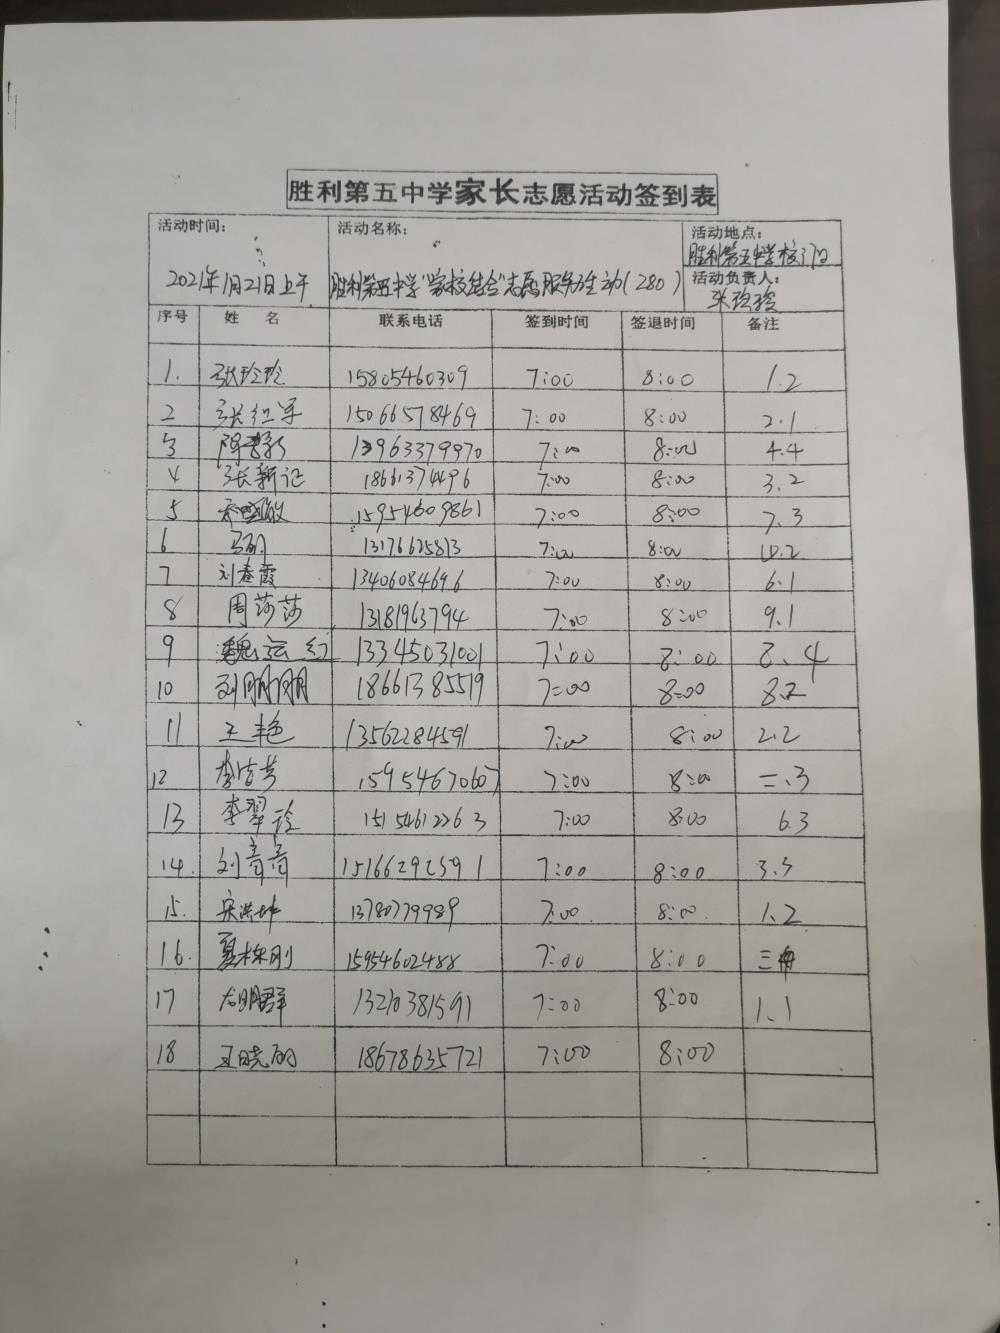 胜利第五中学家长志愿活动签到表
活动时间： 活动名称： 活动地点：
胜利第五中学校门口
2021年1月21日上午 胜利第五中学"家校结合"志愿服务活动(280) 活动负责人：
张玲玲
序号 姓 名 联系电话 签到时间 签退时间 备注
1. 张玲玲 15805460309 7:00 8:00 1.2
2 张红军 15066578469 7:00 8:00 2.1
3 13963379970 7:00 8:00 4.4
4 张新记 18661374496 7:00 8:00 3.2
5 15954609861 7:00 8:00 7.3
6 马丽 13176625813 7:00 8:00 10.2
7 刘春霞 13406084696 7:00 8:00 6.1
8 周莎莎 13181963794 7:00 8:00 9.1
9 魏运红 13345031001 7:00 8:00 8.4
10 刘朋朋 18661385519 7:00 8:00 8.2
11 王艳 13562284591 7:00 8:00 2.2
12 15954670607 7:00 8:00 二.3
13 李翠玲 15154612263 7:00 8:00 6.3
14. 刘青青 15166292391 7:00 8:00 3.3
15. 宋洪坤 13780779989 7:00 8:00 1.2
16. 夏栋刚 15954602488 7:00 8:00 三
17 尤明群 13210381591 7:00 8:00 1.1
18 王晓丽 18678635721 7:00 8:00